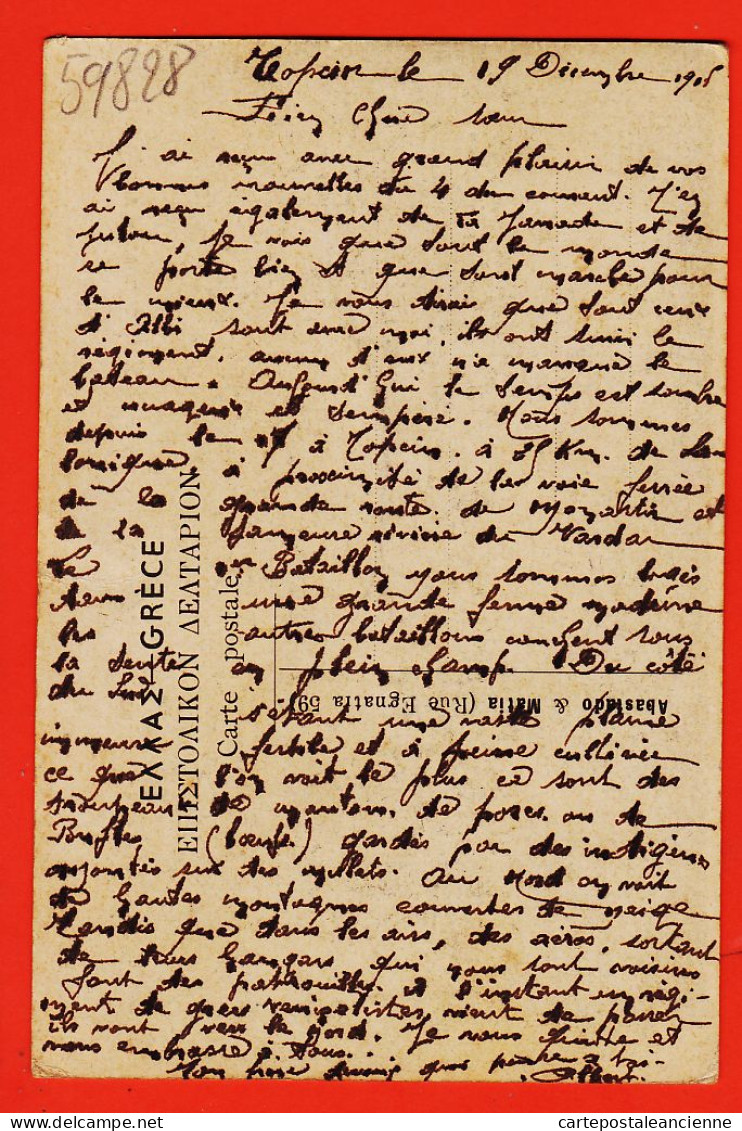 59828
Topcin le 19 Décembre 1915
Bien Chère Sœur
J'ai reçu avec grand plaisir de vos
bonnes nouvelles du 4 du courant. J'en
ai reçu également de la et de
je vois que tout le monde
se porte bien et que tout marche pour
le mieux. Je vous dirais que tout ceux
d'Albi sont avec moi, ils ont suivi le
régiment. aucun d'eux n'a manqué le
bateau. Aujourd'hui le temps est sombre
et nuageux et tempéré. Nous sommes
depuis le 17 à Topcin. à 25 Km. de Salonique
à proximité de la voie ferrée
de la grande route de Monastir et
de la fameuse rivière du Vardar
Le Bataillon nous sommes logés
dans une grande ferme modèrne
les autres bataillons couchent sous
la tente en plein champ. Du côté
du Sud s'étant une vaste plaine
immense fertile et à peine cultivée
ce que l'on voit le plus ce sont des
troupeau de moutons. de porcs. ou de
Buffles (bœufs) gardés par des indigènes
montés sur des mullets. Au Nord on voit
de hautes montagnes couvertes de neige
Tandis que dans les airs, des aéros. sortant
de leurs hangars qui nous sont voisins
font des patrouilles. A l'instant un régiment
de grecs venizelistes vient de passer
ils vont vers le nord. Je vous quitte et
vous embrasse à tous..
Ton frère qui pense à toi.
Albert.
ΕΛΛΑΣ-GRÈCE
ΕΠΙΣΤΟΛΙΚΟΝ ΔΕΛΤΑΡΙΟΝ
Carte postale
Abastado & Matia (Rue Egnatia 59)
FR - cartepostaleancienne
cartepostaleancienne.com